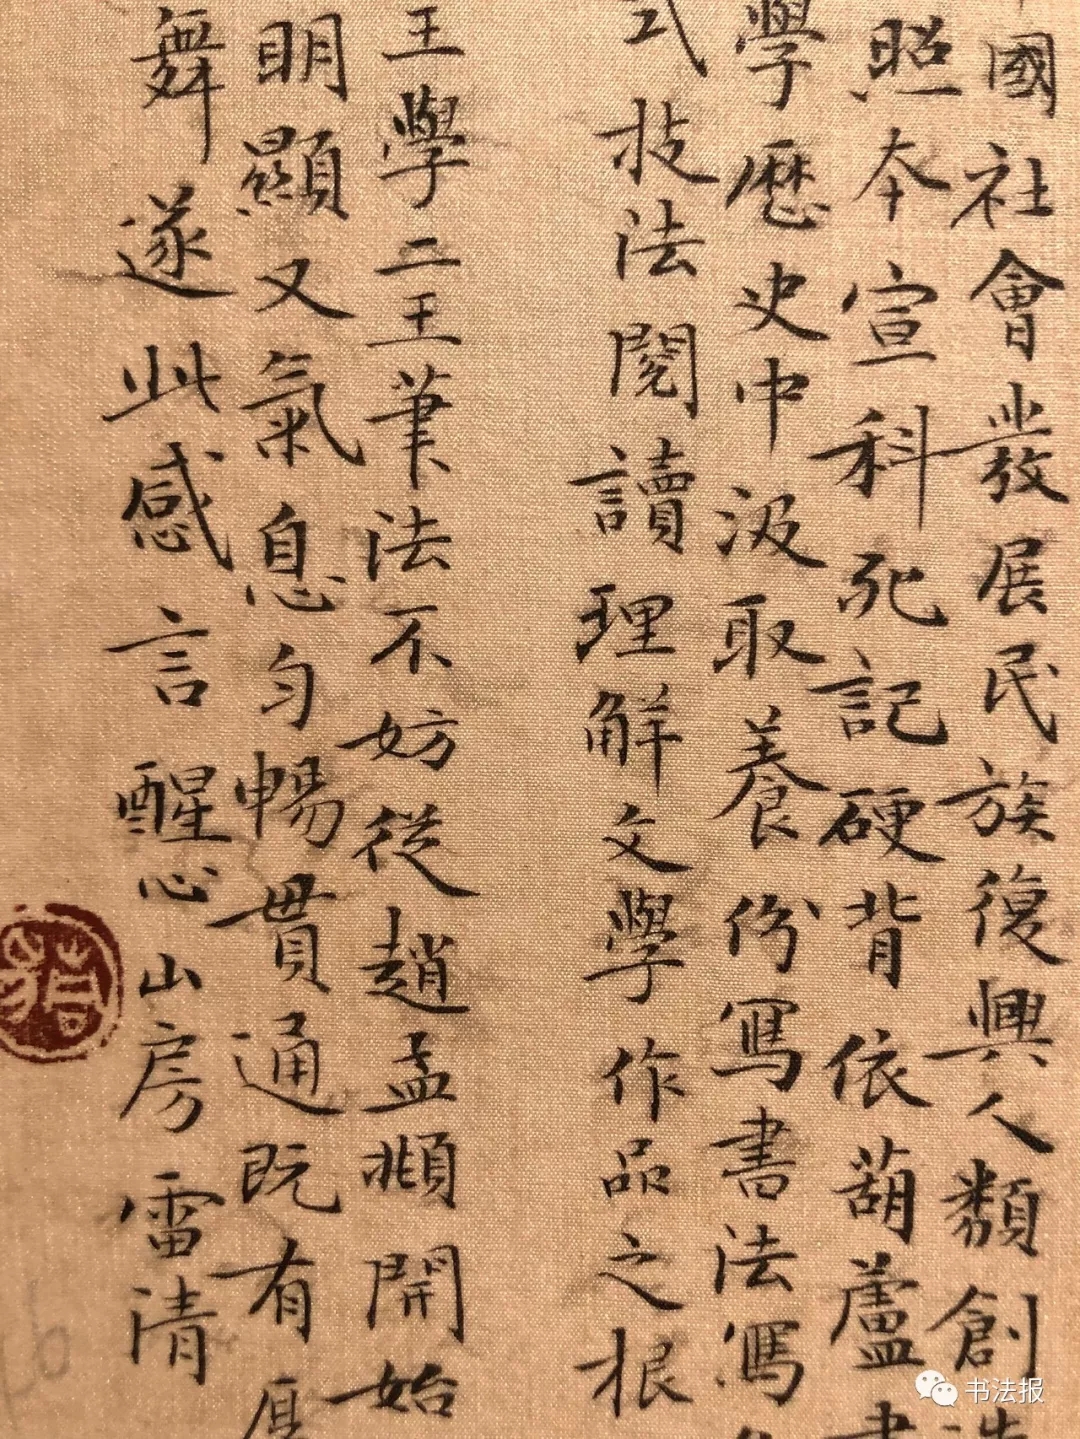 國社會發展民族復興人類創造
照本宣科死記硬背依葫蘆畫
學歷史中汲取養份寫書法寫
式技法閱讀理解文學作品之根
王學二王筆法不妨從趙孟頫開始
明顯又氣息勻暢貫通既有
舞遂此感言醒心山房雷清
书法报